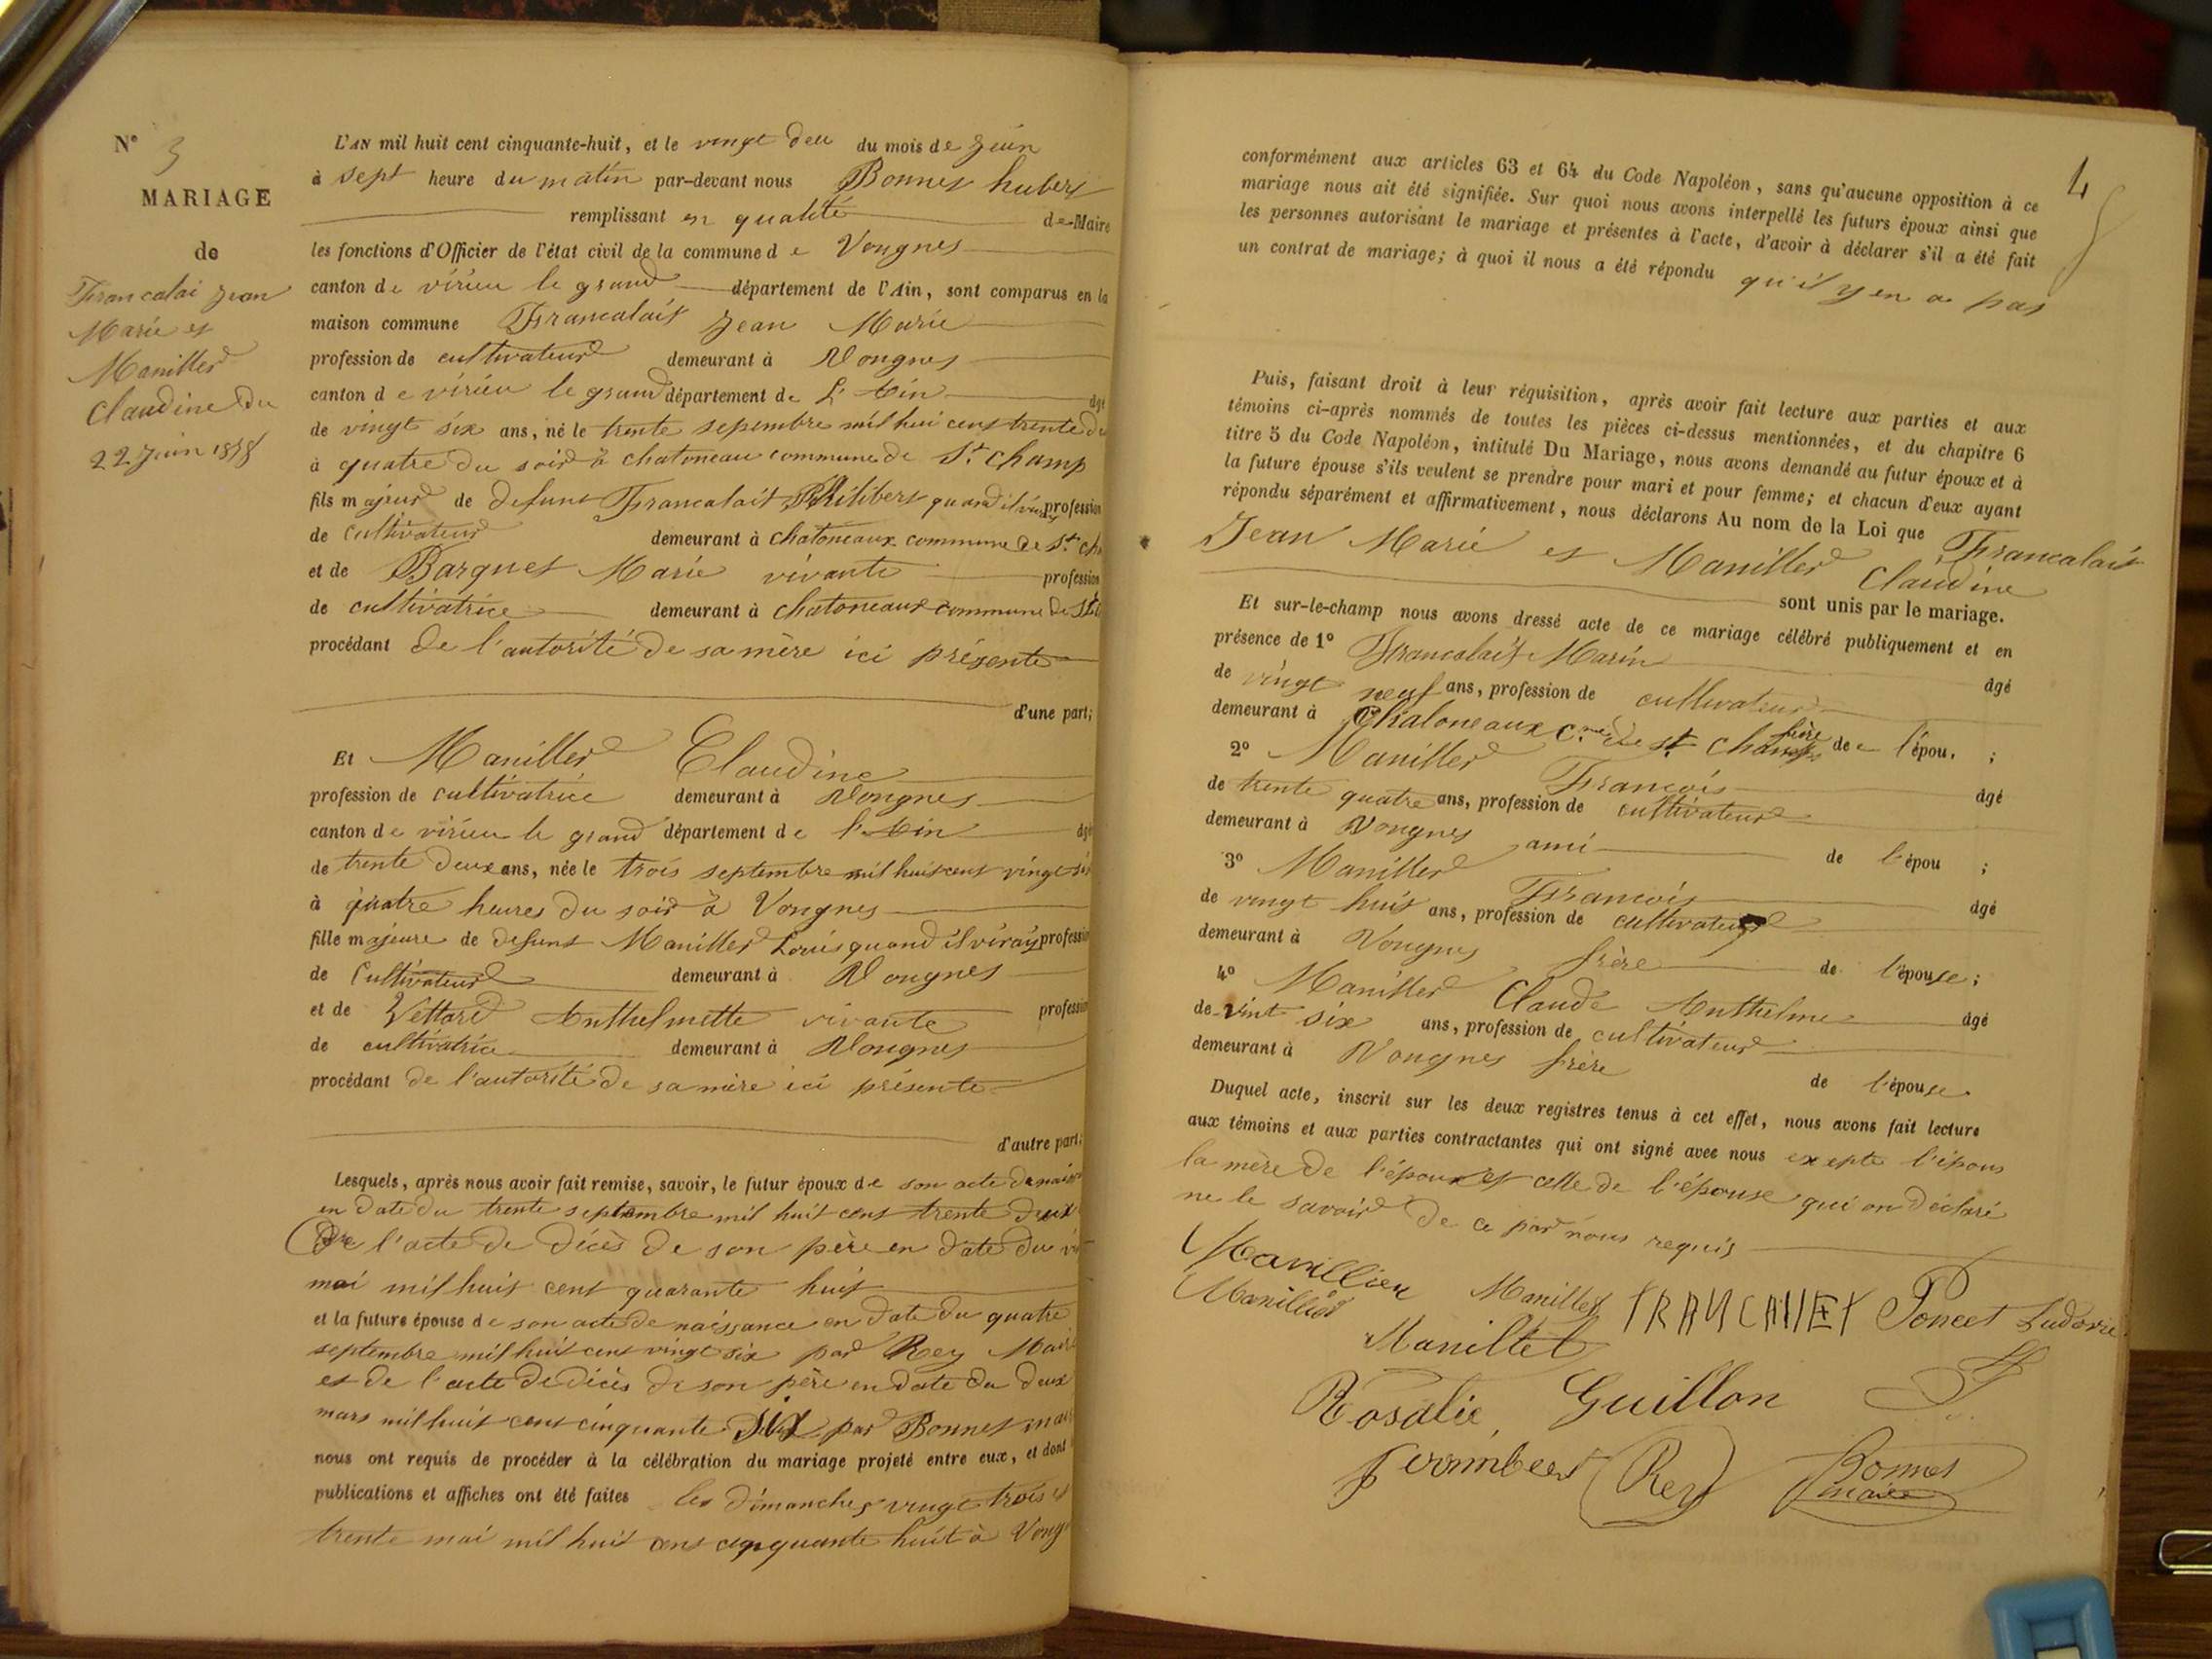 N° 3
MARIAGE
de
Francalai Jean
Marie et
Manillier
Claudine du
22 Juin 1858
L'AN mil huit cent cinquante-huit, et le vingt deu du mois de Juin
à sept heure du matin par-devant nous Bonnet hubert
remplissant en qualité de Maire
les fonctions d'Officier de l'état civil de la commune de Vongnes
canton de virieu le grand département de l'Ain, sont comparus en la
maison commune Francalait Jean Marie
profession de cultivateur demeurant à Vongnes
canton de virieu le grand département de L'Ain âgé
de vingt six ans, né le trente sepembre mil hui cent trente de
à quatre du soir à chatoneau commune de St champ
fils majeur de defunt Francalait Philibert quand il vivay profession
de cultivateur demeurant à chatoneaux commune de St ch
et de Barquet Marie vivante profession
de cultivatrice demeurant à chatoneaux commune de St
procédant de l'autorité de sa mère ici présente
d'une part;
Et Manillier Claudine
profession de cultivatrice demeurant à Vongnes
canton de virieu le grand département de l'Ain âgé
de trente deux ans, née le trois septembre mil huit cent vingt six
à quatre heures du soir à Vongnes
fille majeure de defunt Manillier Louis quand il vivay profession
de Cultivateur demeurant à Vongnes
et de Vettard Anthelmette vivante profession
de cultivatrice demeurant à Vongnes
procédant de l'autorité de sa mère ici présente
d'autre part;
Lesquels, après nous avoir fait remise, savoir, le futur époux de son acte de naiss
en date du trente septembre mil huit cent trente deux
De l'acte de décès de son père en date du
mai mil huit cent quarante huit
et la future épouse de son acte de naissance en date du quatre
septembre mil huit cent vingt six par Rey Mair
et de l'acte de décès de son père en date du deux
mars mil huit cent cinquante six par Bonnet mai
nous ont requis de procéder à la célébration du mariage projeté entre eux, et dont
publications et affiches ont été faites les dimanches vingt trois et
trente mai mil huit cent cinquante huit à Vong
4
conformément aux articles 63 et 64 du Code Napoléon, sans qu'aucune opposition à ce
mariage nous ait été signifiée. Sur quoi nous avons interpellé les futurs époux ainsi que
les personnes autorisant le mariage et présentes à l'acte, d'avoir à déclarer s'il a été fait
un contrat de mariage; à quoi il nous a été répondu qu'il y en a pas
Puis, faisant droit à leur réquisition, après avoir fait lecture aux parties et aux
témoins ci-après nommés de toutes les pièces ci-dessus mentionnées, et du chapitre 6
titre 5 du Code Napoléon, intitulé Du Mariage, nous avons demandé au futur époux et à
la future épouse s'ils veulent se prendre pour mari et pour femme; et chacun d'eux ayant
répondu séparément et affirmativement, nous déclarons Au nom de la Loi que Francalait
Jean Marie et Manillier Claudine
sont unis par le mariage.
Et sur-le-champ nous avons dressé acte de ce mariage célébré publiquement et en
présence de 1° Francalait Marin âgé
de vingt neuf ans, profession de cultivateur
demeurant à Chatoneaux Cne de St Champ frère de l'épou. ;
2° Manillier François âgé
de trente quatre ans, profession de cultivateur
demeurant à Vongnes ami de l'épou ;
3° Manillier François âgé
de vingt huit ans, profession de cultivateur
demeurant à Vongnes frère de l'épouse;
4° Manillier Claude Anthelme âgé
de vint six ans, profession de cultivateur
demeurant à Vongnes frère de l'épouse
Duquel acte, inscrit sur les deux registres tenus à cet effet, nous avons fait lecture
aux témoins et aux parties contractantes qui ont signé avec nous exepte l'épous
la mère de l'époux et celle de l'épouse qui on déclaré
ne le savoir de ce par nous requis
Manillier Manillier FRANCALLET Poncet Ludovic
Manillier
Manillet
Rosalie Guillon
Rey Bonnet
maire